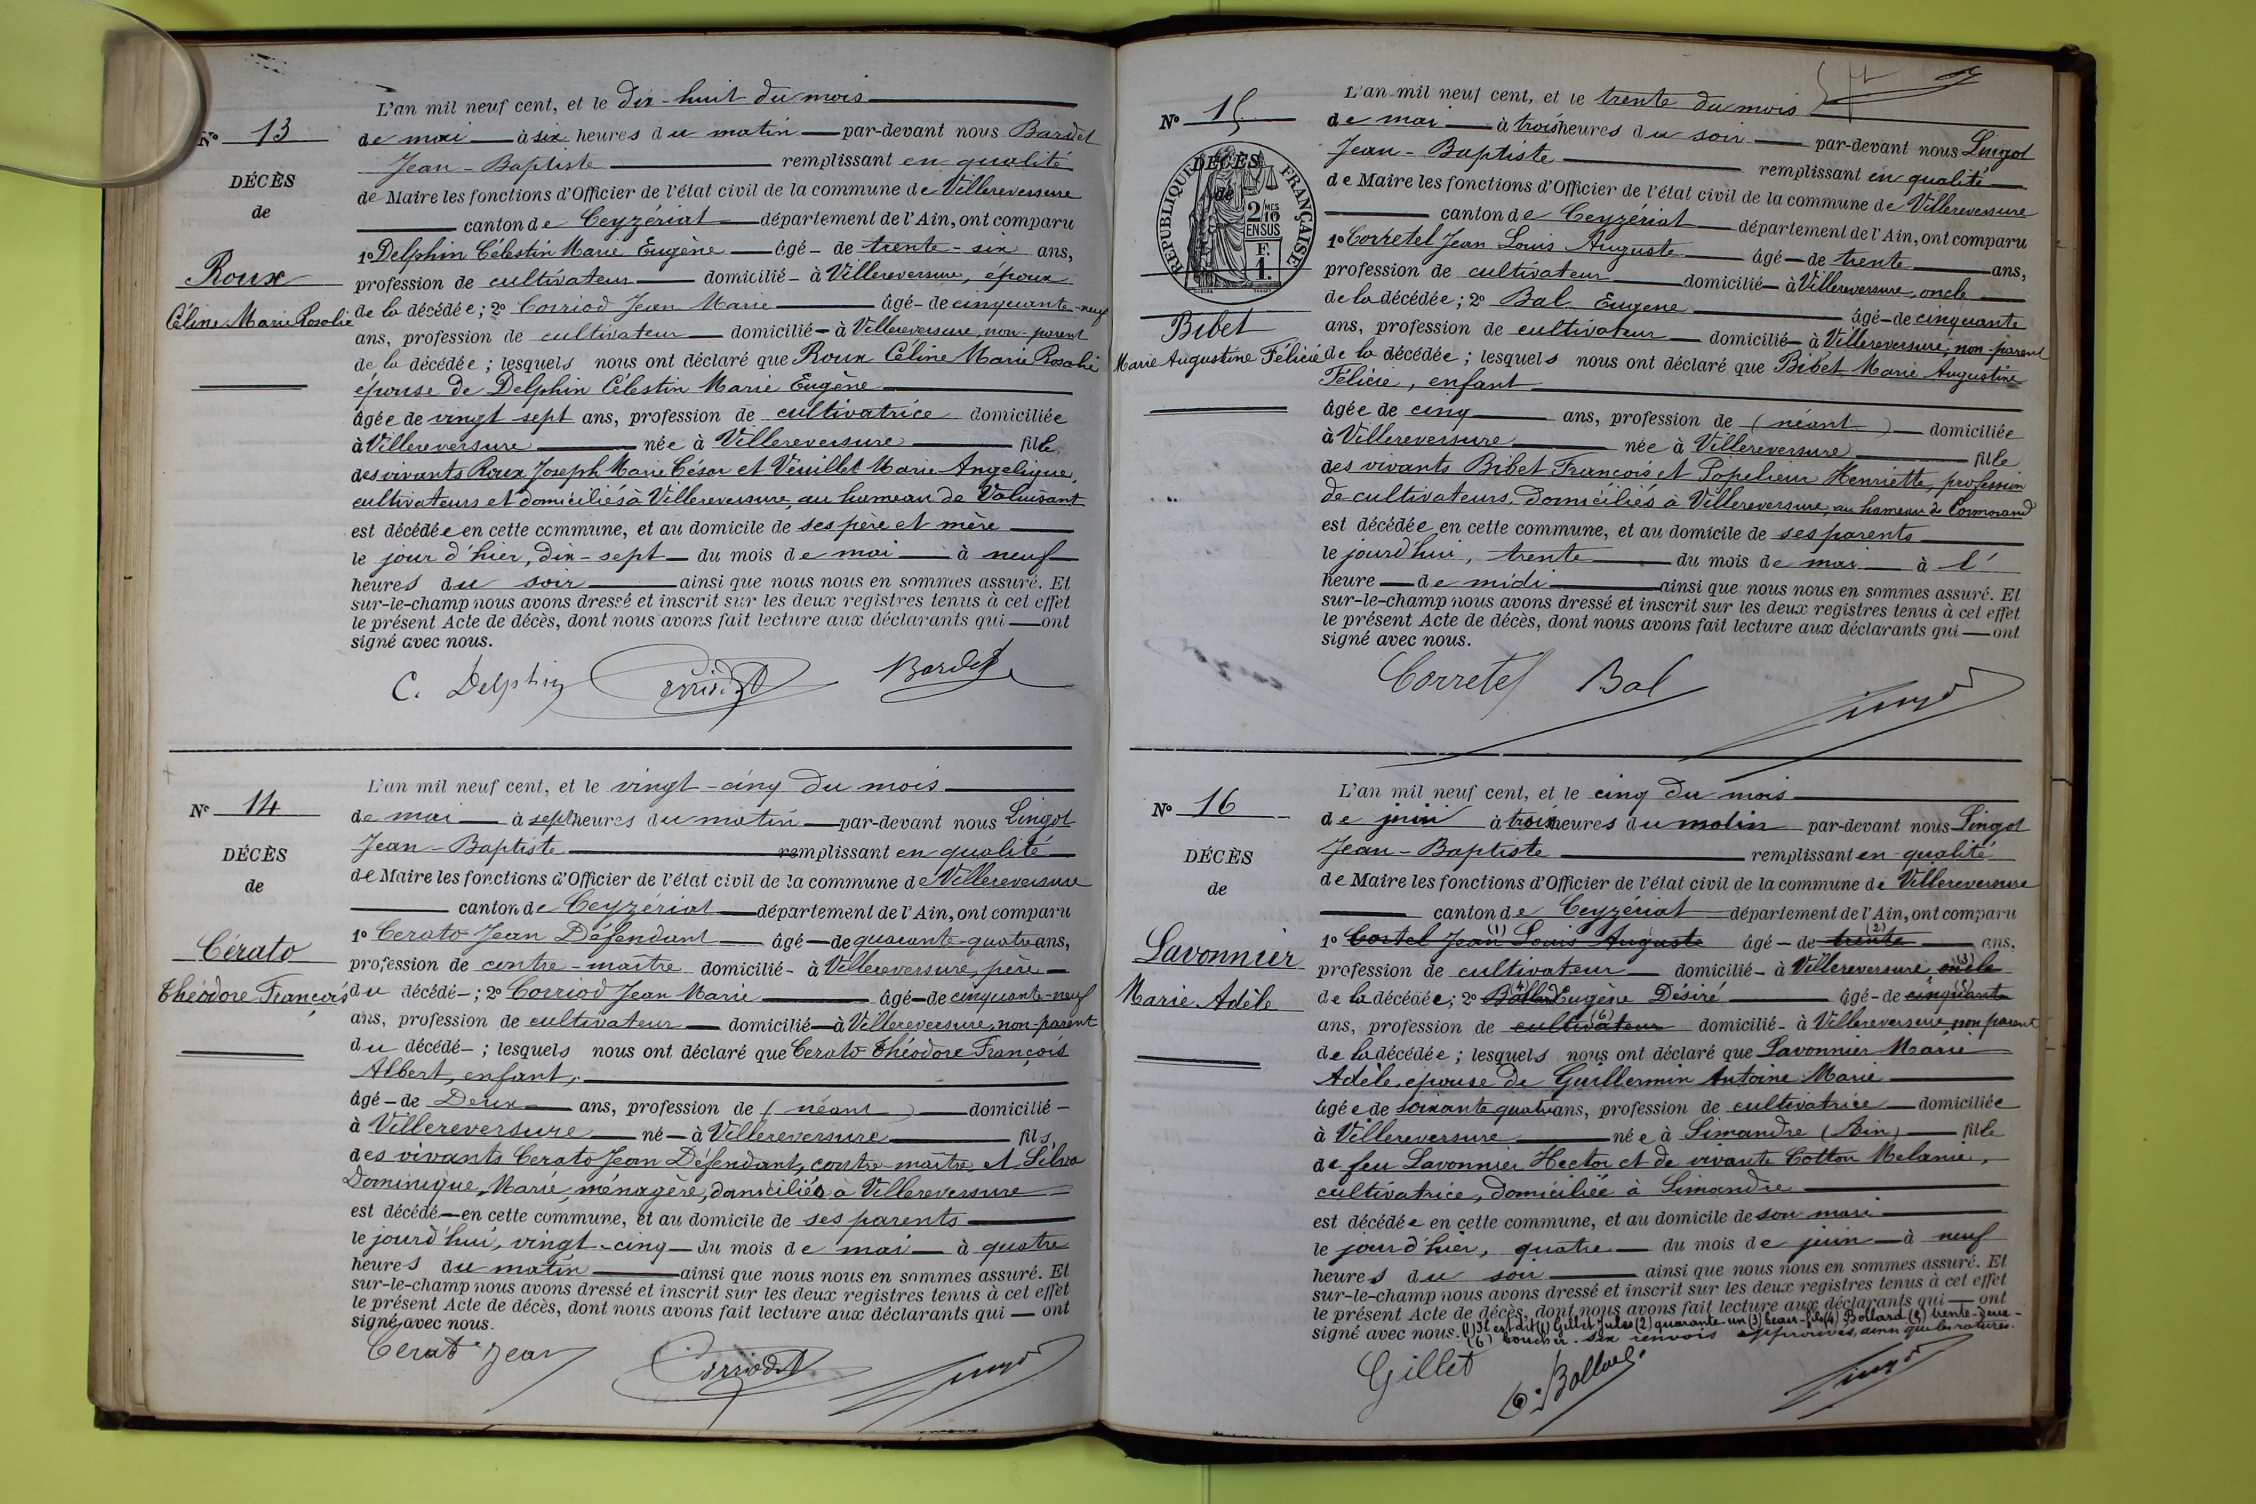 N° 13
DÉCÈS
de
Roux
Céline Marie Rosalie
L'an mil neuf cent, et le dix-huit du mois
de mai à six heures du matin par-devant nous Bardet
Jean-Baptiste remplissant en qualité
de Maire les fonctions d'Officier de l'état civil de la commune de Villereversure
canton de Ceyzériat département de l'Ain, ont comparu
1° Delphin Célestin Marie Eugène âgé de trente-six ans,
profession de cultivateur domicilié à Villereversure, époux
de la décédée; 2° Corriod Jean Marie âgé de cinquante-neuf
ans, profession de cultivateur domicilié à Villereversure, non-parent
de la décédée; lesquels nous ont déclaré que Roux Céline Marie Rosalie
épouse de Delphin Célestin Marie Eugène
âgée de vingt sept ans, profession de cultivatrice domiciliée
à Villereversure née à Villereversure fille
des vivants Roux Joseph Marie César et Veuillet Marie Angelique,
cultivateurs et domiciliés à Villereversure, au hameau de Valuisant
est décédée en cette commune, et au domicile de ses père et mère
le jour d'hier, dix-sept du mois de mai à neuf
heures du soir ainsi que nous nous en sommes assuré. Et
sur-le-champ nous avons dressé et inscrit sur les deux registres tenus à cet effet
le présent Acte de décès, dont nous avons fait lecture aux déclarants qui ont
signé avec nous.
C. Delphin Corriod Bardet
N° 14
DÉCÈS
de
Cérato
Théodore François
L'an mil neuf cent, et le vingt-cinq du mois
de mai à sept heures du matin par-devant nous Lingot
Jean-Baptiste remplissant en qualité
de Maire les fonctions d'Officier de l'état civil de la commune de Villereversure
canton de Ceyzériat département de l'Ain, ont comparu
1° Cerato Jean Défendant âgé de quarante-quatre ans,
profession de contre-maître domicilié à Villereversure, père
du décédé; 2° Corriod Jean Marie âgé de cinquante-neuf
ans, profession de cultivateur domicilié à Villereversure, non-parent
du décédé; lesquels nous ont déclaré que Cerato Théodore François
Albert, enfant,
âgé de Deux ans, profession de (néant) domicilié
à Villereversure né à Villereversure fils
des vivants Cerato Jean Défendant, contre-maître et Silva
Dominique, Marie, ménagère, domiciliés à Villereversure
est décédé en cette commune, et au domicile de ses parents
le jourd'hui, vingt-cinq du mois de mai à quatre
heures du matin ainsi que nous nous en sommes assuré. Et
sur-le-champ nous avons dressé et inscrit sur les deux registres tenus à cet effet
le présent Acte de décès, dont nous avons fait lecture aux déclarants qui ont
signé avec nous.
Cerato Jean Corriod Lingot
N° 15
DÉCÈS
de
RÉPUBLIQUE FRANÇAISE
2/10 MES
EN SUS
F.
1.
Bibet
Marie Augustine Félicie
L'an mil neuf cent, et le trente du mois
de mai à trois heures du soir par-devant nous Lingot
Jean-Baptiste remplissant en qualité
de Maire les fonctions d'Officier de l'état civil de la commune de Villereversure
canton de Ceyzériat département de l'Ain, ont comparu
1° Corretel Jean Louis Auguste âgé de trente ans,
profession de cultivateur domicilié à Villereversure, oncle
de la décédée; 2° Bal Eugene âgé de cinquante
ans, profession de cultivateur domicilié à Villereversure, non-parent
de la décédée; lesquels nous ont déclaré que Bibet Marie Augustine
Félicie, enfant
âgée de cinq ans, profession de (néant) domiciliée
à Villereversure née à Villereversure fille
des vivants Bibet François et Popelieur Henriette, profession
de cultivateurs, domiciliés à Villereversure, au hameau de Cormorand
est décédée en cette commune, et au domicile de ses parents
le jourd'hui, trente du mois de mai à l'
heure de midi ainsi que nous nous en sommes assuré. Et
sur-le-champ nous avons dressé et inscrit sur les deux registres tenus à cet effet
le présent Acte de décès, dont nous avons fait lecture aux déclarants qui ont
signé avec nous.
Corretel Bal Lingot
N° 16
DÉCÈS
de
Lavonnier
Marie Adèle
L'an mil neuf cent, et le cinq du mois
de juin à trois heures du matin par-devant nous Lingot
Jean-Baptiste remplissant en qualité
de Maire les fonctions d'Officier de l'état civil de la commune de Villereversure
canton de Ceyzériat département de l'Ain, ont comparu
1° Cortel Jean (1) Louis Auguste âgé de trente (2) ans,
profession de cultivateur domicilié à Villereversure oncle (3)
de la décédée; 2° Bollard (4) Eugène Désiré âgé de cinquante (5)
ans, profession de cultivateur (6) domicilié à Villereversure, non parent
de la décédée; lesquels nous ont déclaré que Lavonnier Marie
Adèle, epouse de Guillermin Antoine Marie
âgée de soixante quatre ans, profession de cultivatrice domiciliée
à Villereversure née à Simandre (Ain) fille
de feu Lavonnier Hector et de vivante Cotton Melanie,
cultivatrice, domiciliée à Simandre
est décédée en cette commune, et au domicile de son mari
le jour d'hier, quatre du mois de juin à neuf
heures du soir ainsi que nous nous en sommes assuré. Et
sur-le-champ nous avons dressé et inscrit sur les deux registres tenus à cet effet
le présent Acte de décès, dont nous avons fait lecture aux déclarants qui ont
signé avec nous. (1) Il est dit (1) Gillet Jules (2) quarante-un (3) beau-fils (4) Bollard (5) trente-deux
(6) boucher. six renvois approuvés, ainsi que les ratures.
Gillet E. Bollard Lingot